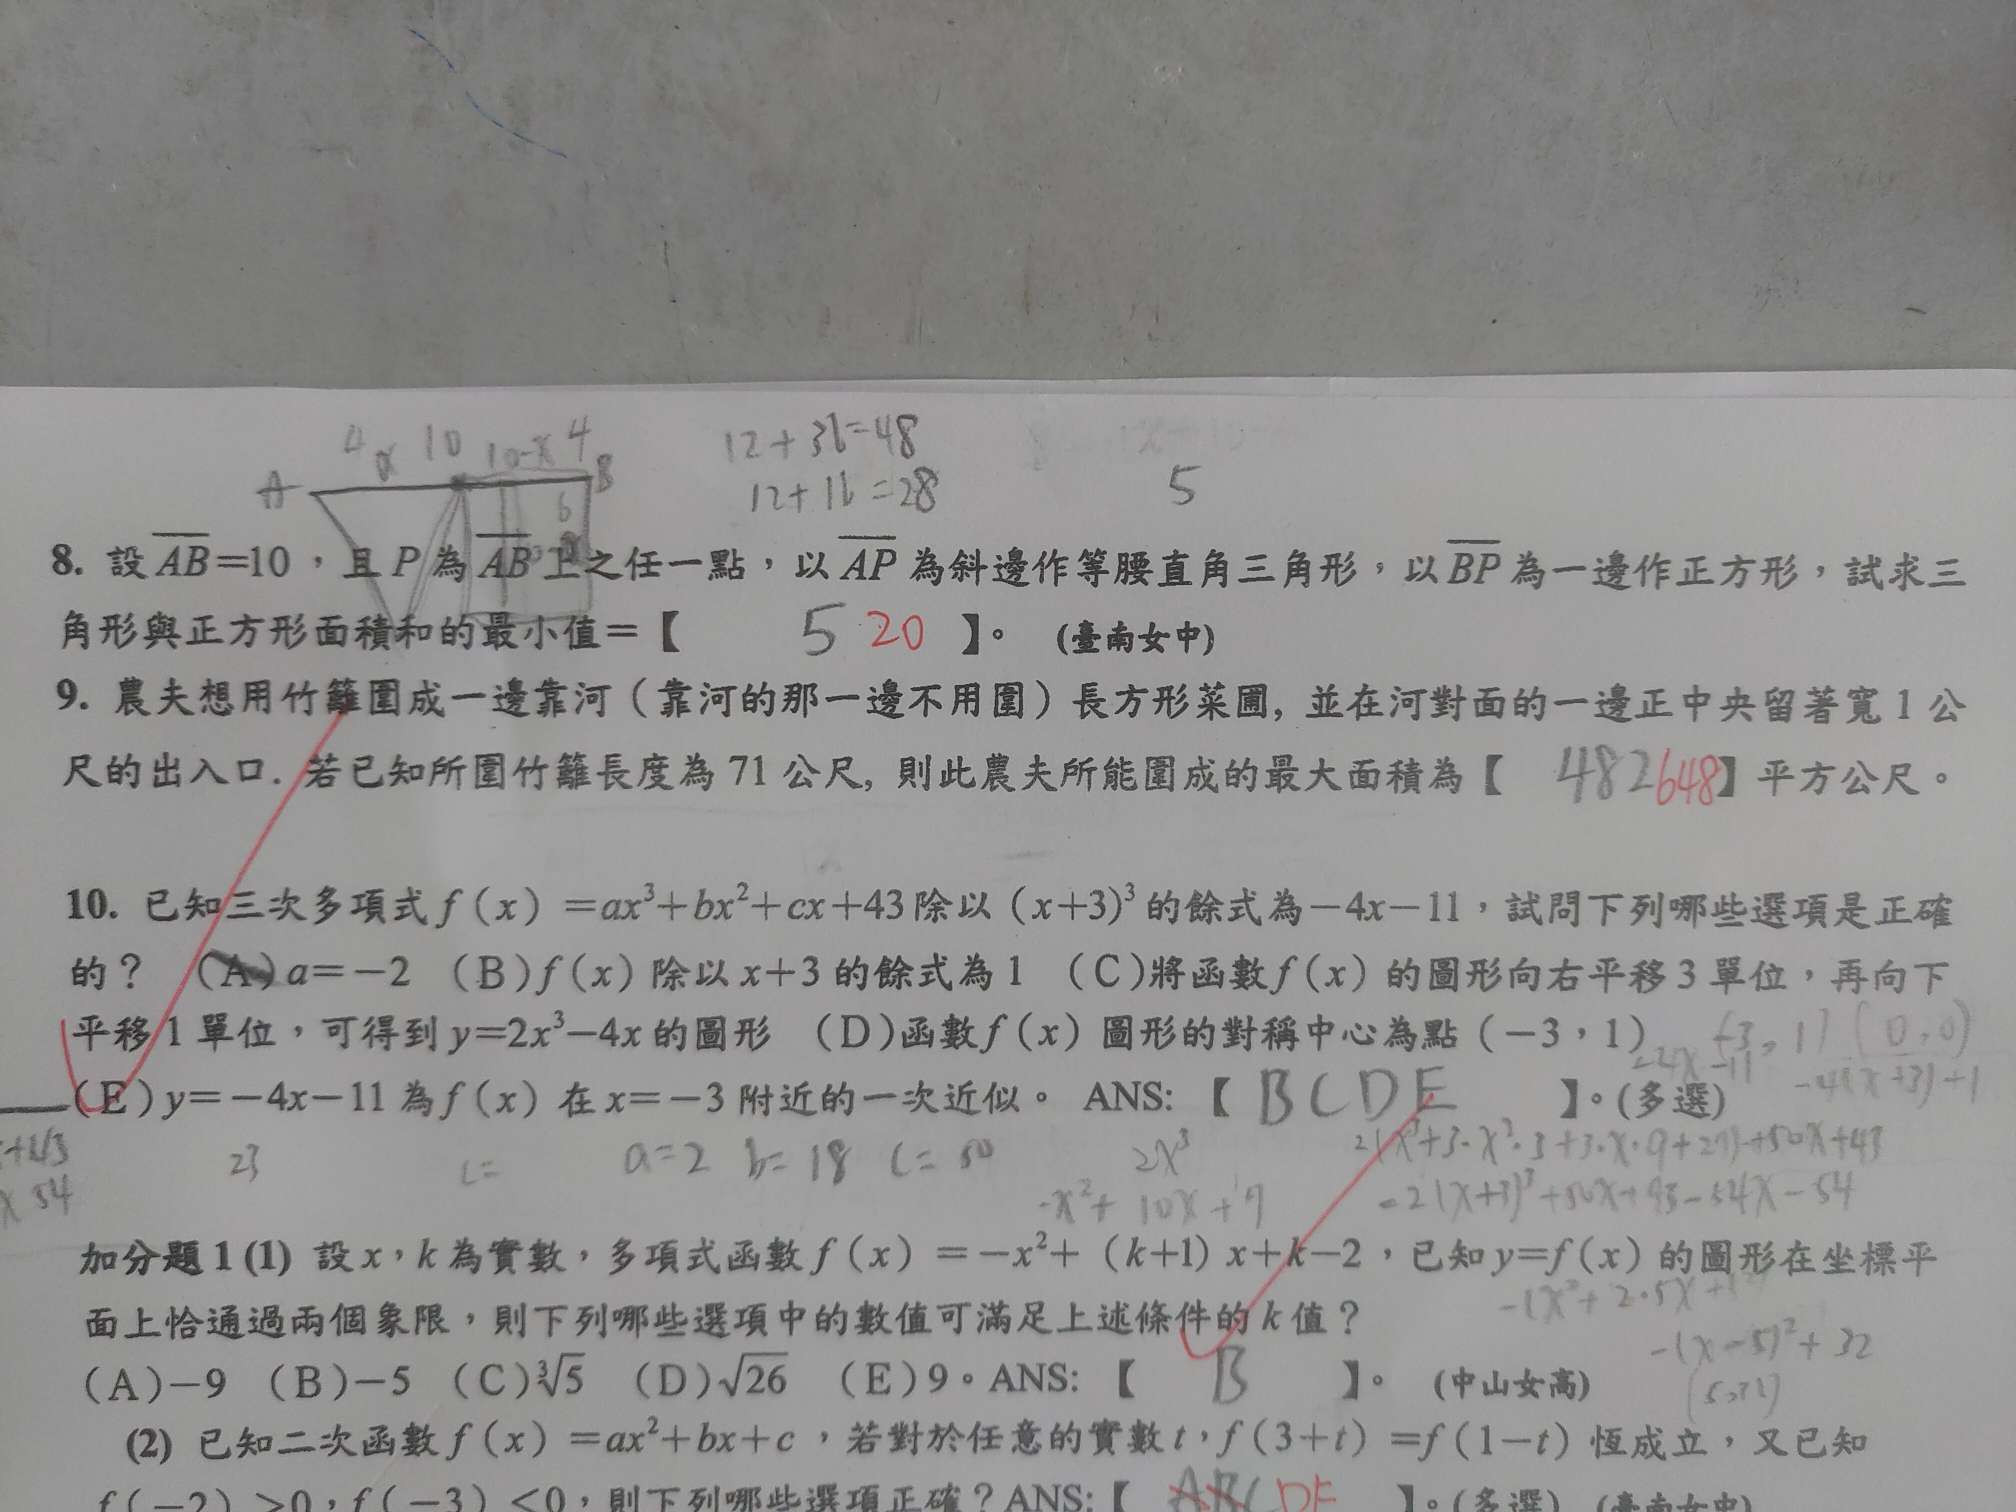 4 x 10 10-x 4
A B
6
12+36=48
12+16=28
5
8. 設AB=10，且P為AB上之任一點，以AP為斜邊作等腰直角三角形，以BP為一邊作正方形，試求三
角形與正方形面積和的最小值＝【 5 20 】。 (臺南女中)
9. 農夫想用竹籬圍成一邊靠河（靠河的那一邊不用圍）長方形菜圃, 並在河對面的一邊正中央留著寬1公
尺的出入口. 若已知所圍竹籬長度為 71 公尺, 則此農夫所能圍成的最大面積為【 482 648 】平方公尺。
10. 已知三次多項式 f（x）=ax³+bx²+cx+43 除以（x+3)³ 的餘式為－4x－11，試問下列哪些選項是正確
的？ （A）a=－2 （B）f（x）除以 x+3 的餘式為 1 （C)將函數 f（x）的圖形向右平移 3 單位，再向下
平移 1 單位，可得到 y=2x³－4x 的圖形 （D)函數 f（x）圖形的對稱中心為點（－3，1）
(-3, 1) (0,0)
-4x-11
-4(x+3)+1
（E）y=－4x－11 為 f（x）在 x=－3 附近的一次近似。 ANS: 【 BCDE 】。(多選)
23 c= a=2 b=18 c=50 2x³
2(x³+3·x²·3+3·x·9+27)+50x+43
x 54
-x²+10x+7
=2(x+3)³+50x+43-54x-54
加分題 1 (1) 設 x，k 為實數，多項式函數 f（x）=－x²+（k+1）x+k－2，已知 y=f（x）的圖形在坐標平
面上恰通過兩個象限，則下列哪些選項中的數值可滿足上述條件的 k 值？
-(x-5)²+32
（A）－9 （B）－5 （C）³√5 （D）√26 （E）9。ANS: 【 B 】。 (中山女高)
(2) 已知二次函數 f（x）=ax²+bx+c ，若對於任意的實數 t，f（3+t）=f（1－t）恆成立，又已知
f（－2）>0，f（－3）<0，則下列哪些選項正確？ANS:【 ABCDE 】。(多選) (臺南女中)